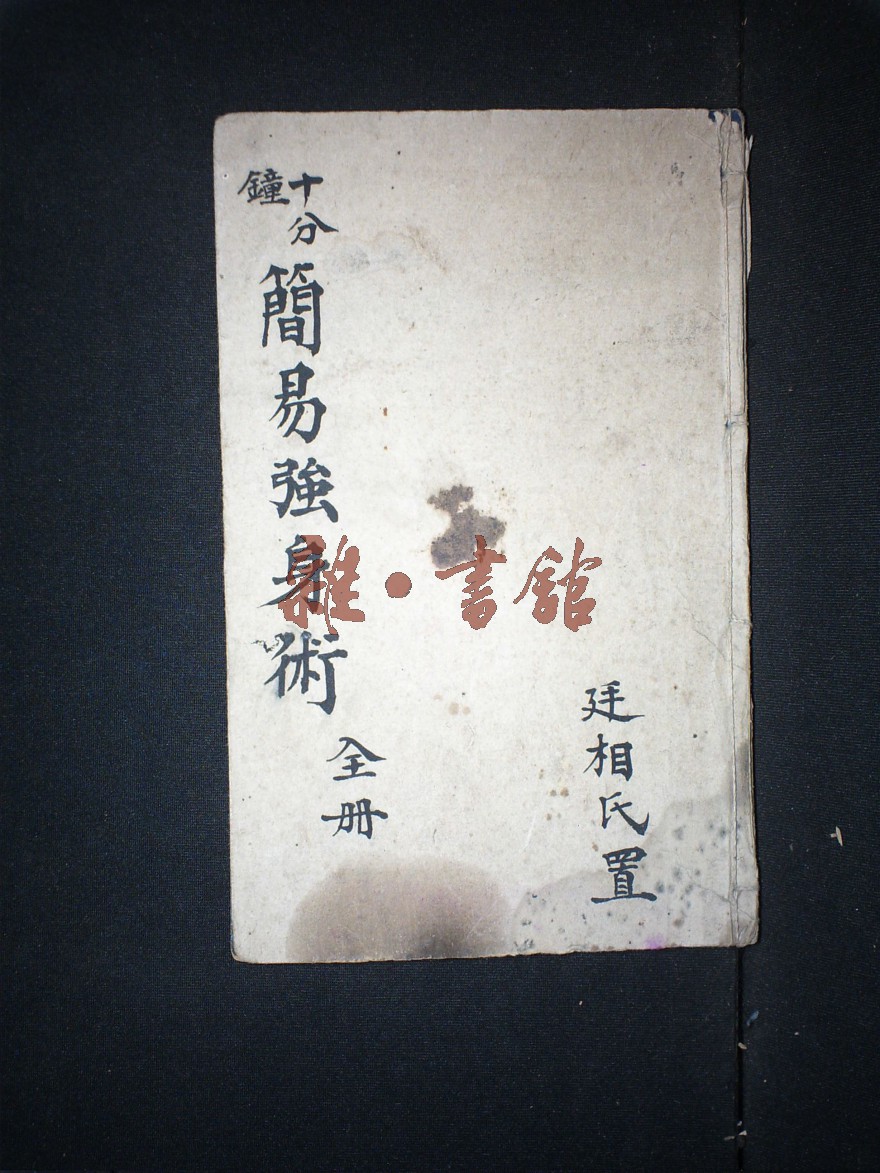 廷相氏置
十分鐘
簡易強身術
全册
雜·書館